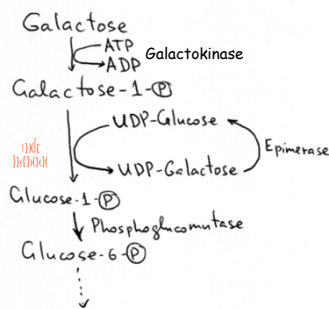 Galactose
ATP
ADP
Galactokinase
Galactose-1-Ⓟ
UDP-Glucose
Epimerase
UDP-Galactose
Glucose-1-Ⓟ
Phosphoglucomutase
Glucose-6-Ⓟ